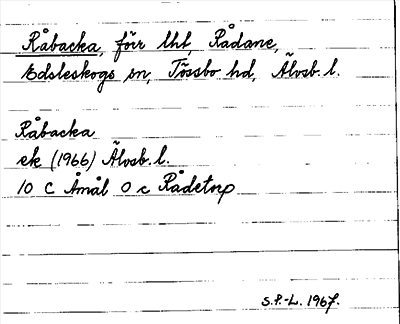 Råbacka, förr lht, Rådane,
Edsleskogs sn, Tössbo hd, Älvsb. l.
Råbacka
ek (1966) Älvsb. l.
10 C Åmål O c Rådetorp
S.P.-L. 1967.